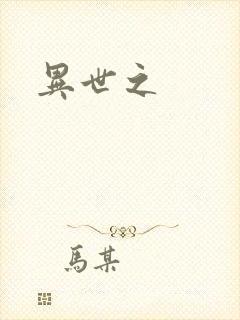 異世之
馬某